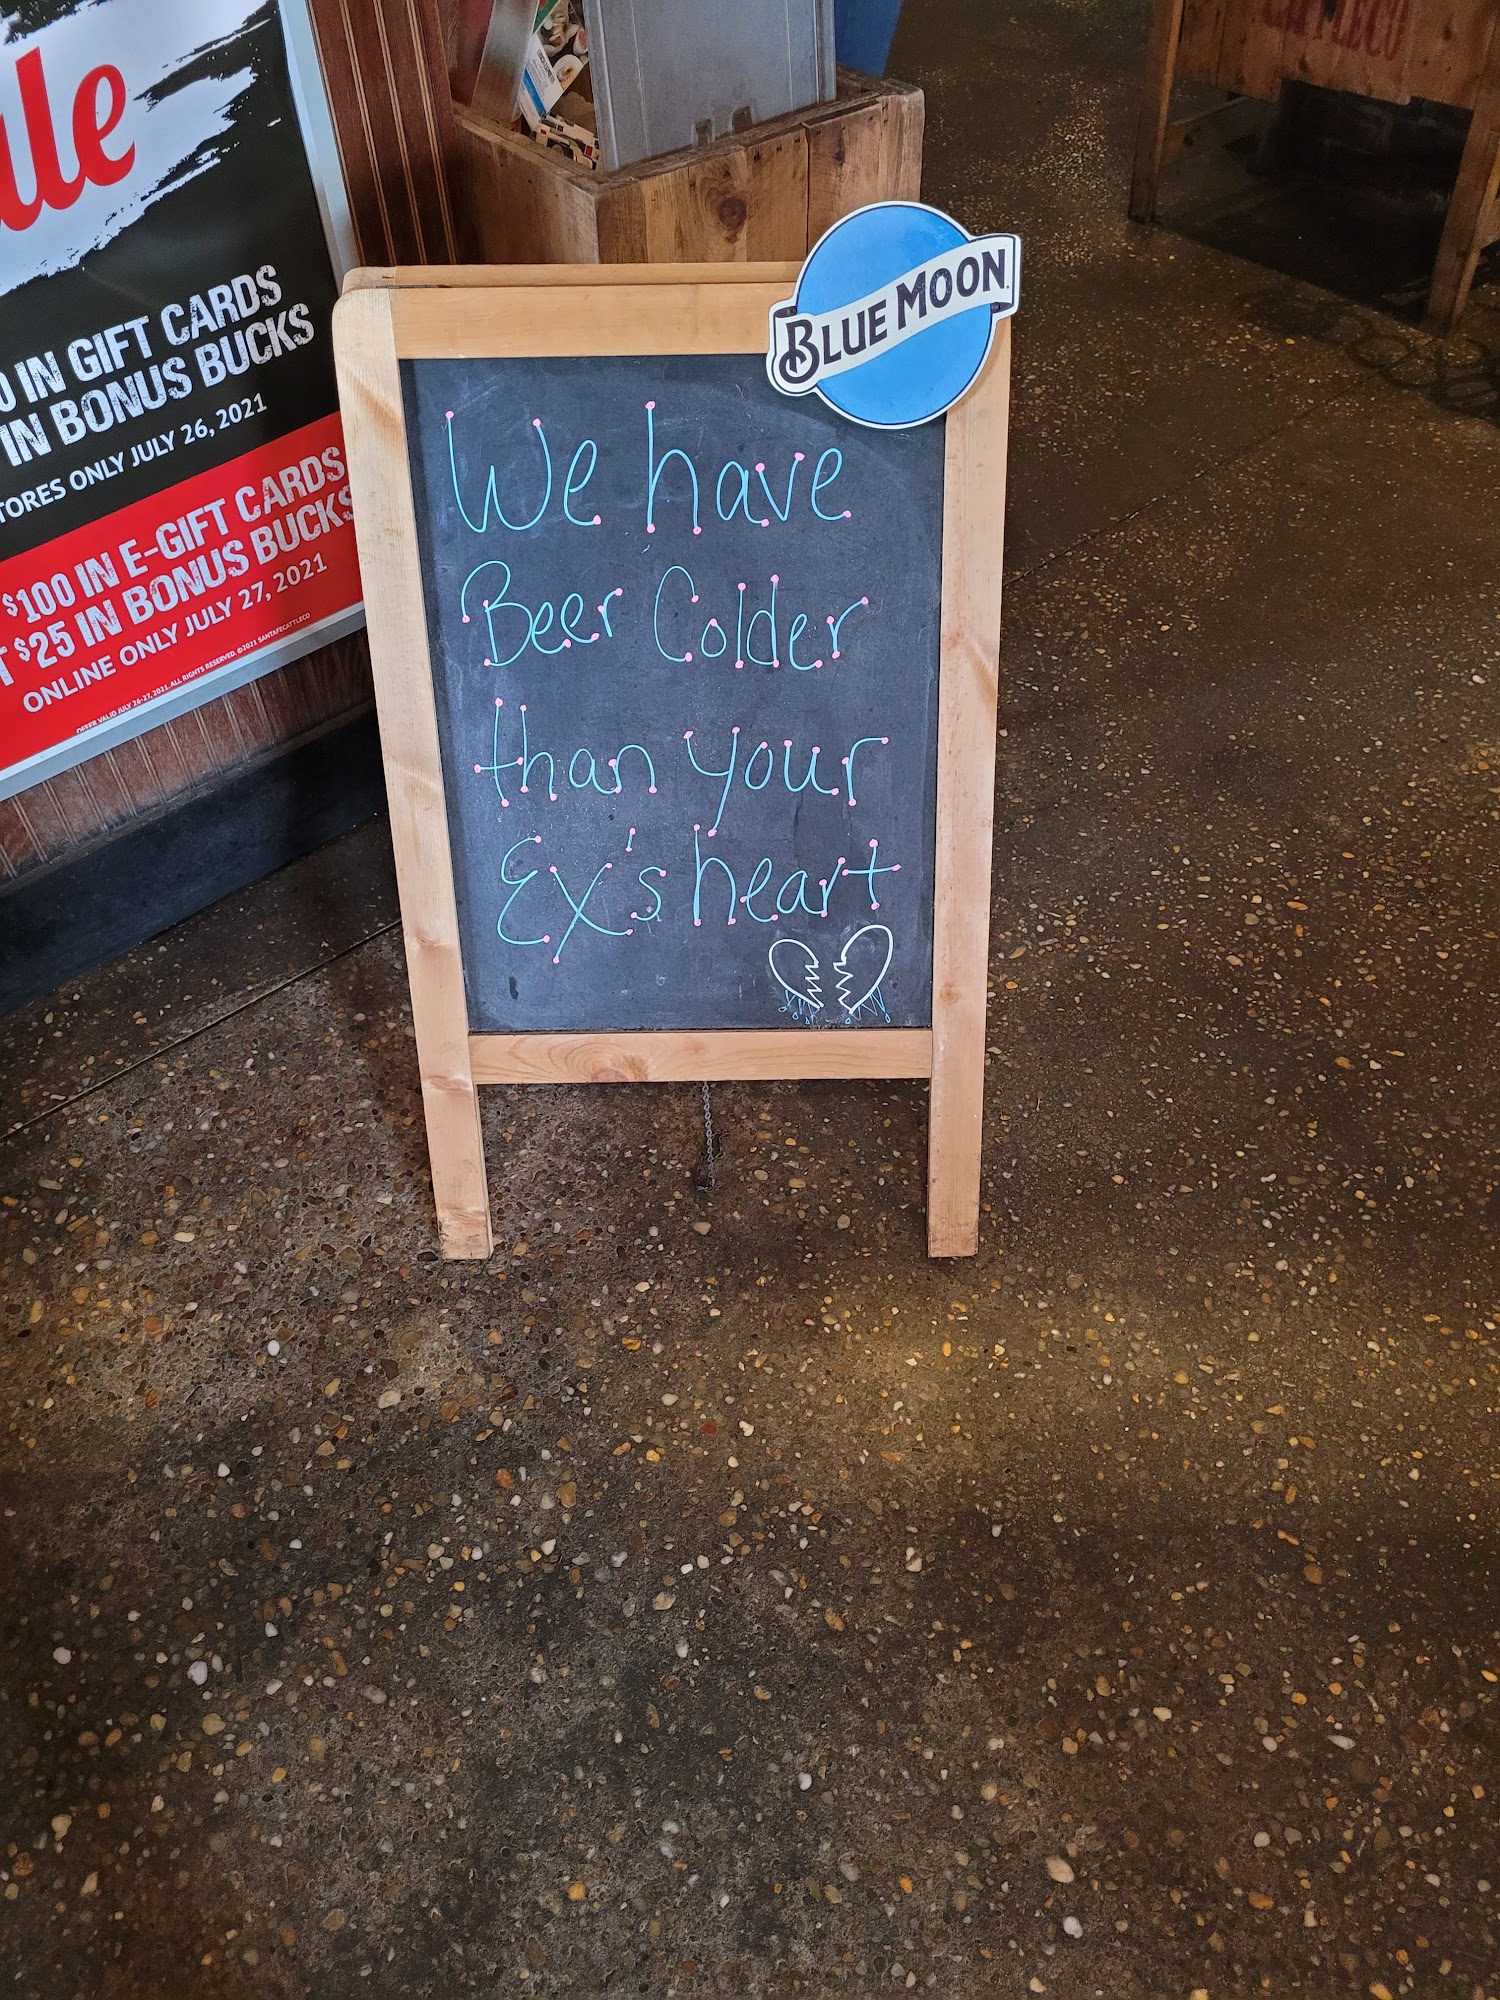 IN GIFT CARDS
IN BONUS BUCKS
ONLY JULY 26, 2021
$100 IN E-GIFT CARDS
$25 IN BONUS BUCKS
ONLINE ONLY JULY 27, 2021
OFFER VALID JULY 26-27, 2021. ALL RIGHTS RESERVED. ©2021 SANTAFECATTLECO
BLUE MOON
We have
Beer Colder
than your
Ex's heart